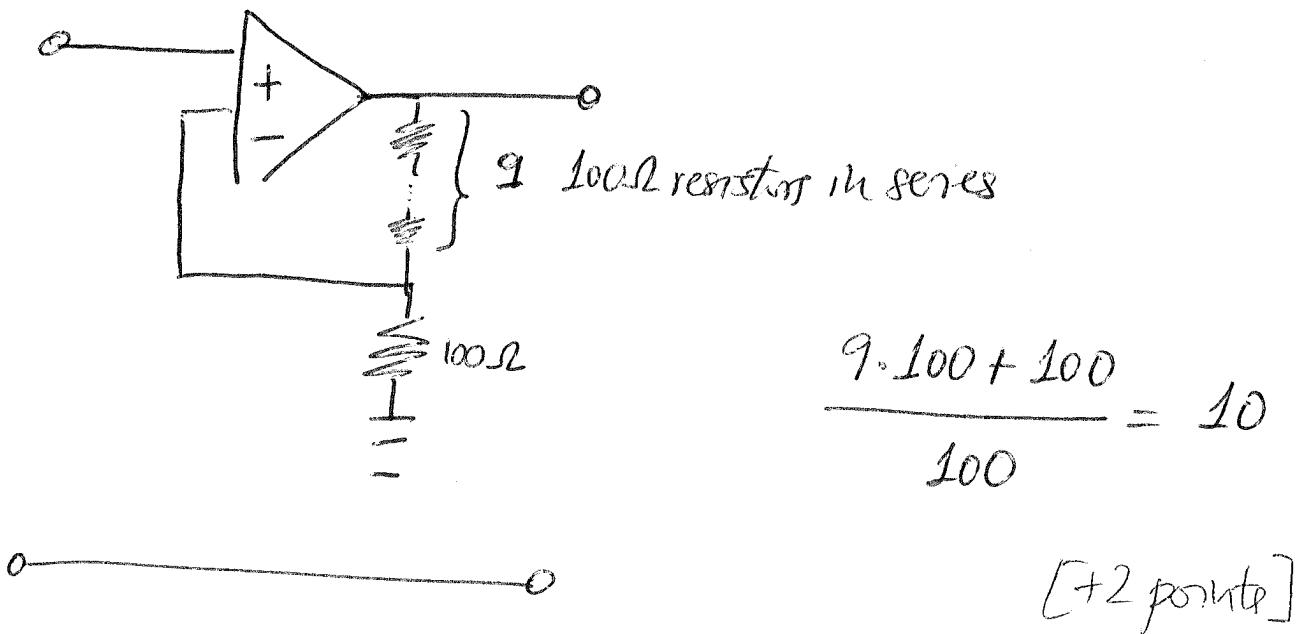 +
−
9 100Ω resistors in series
100Ω
9.100 + 100
100
= 10
[+2 points]